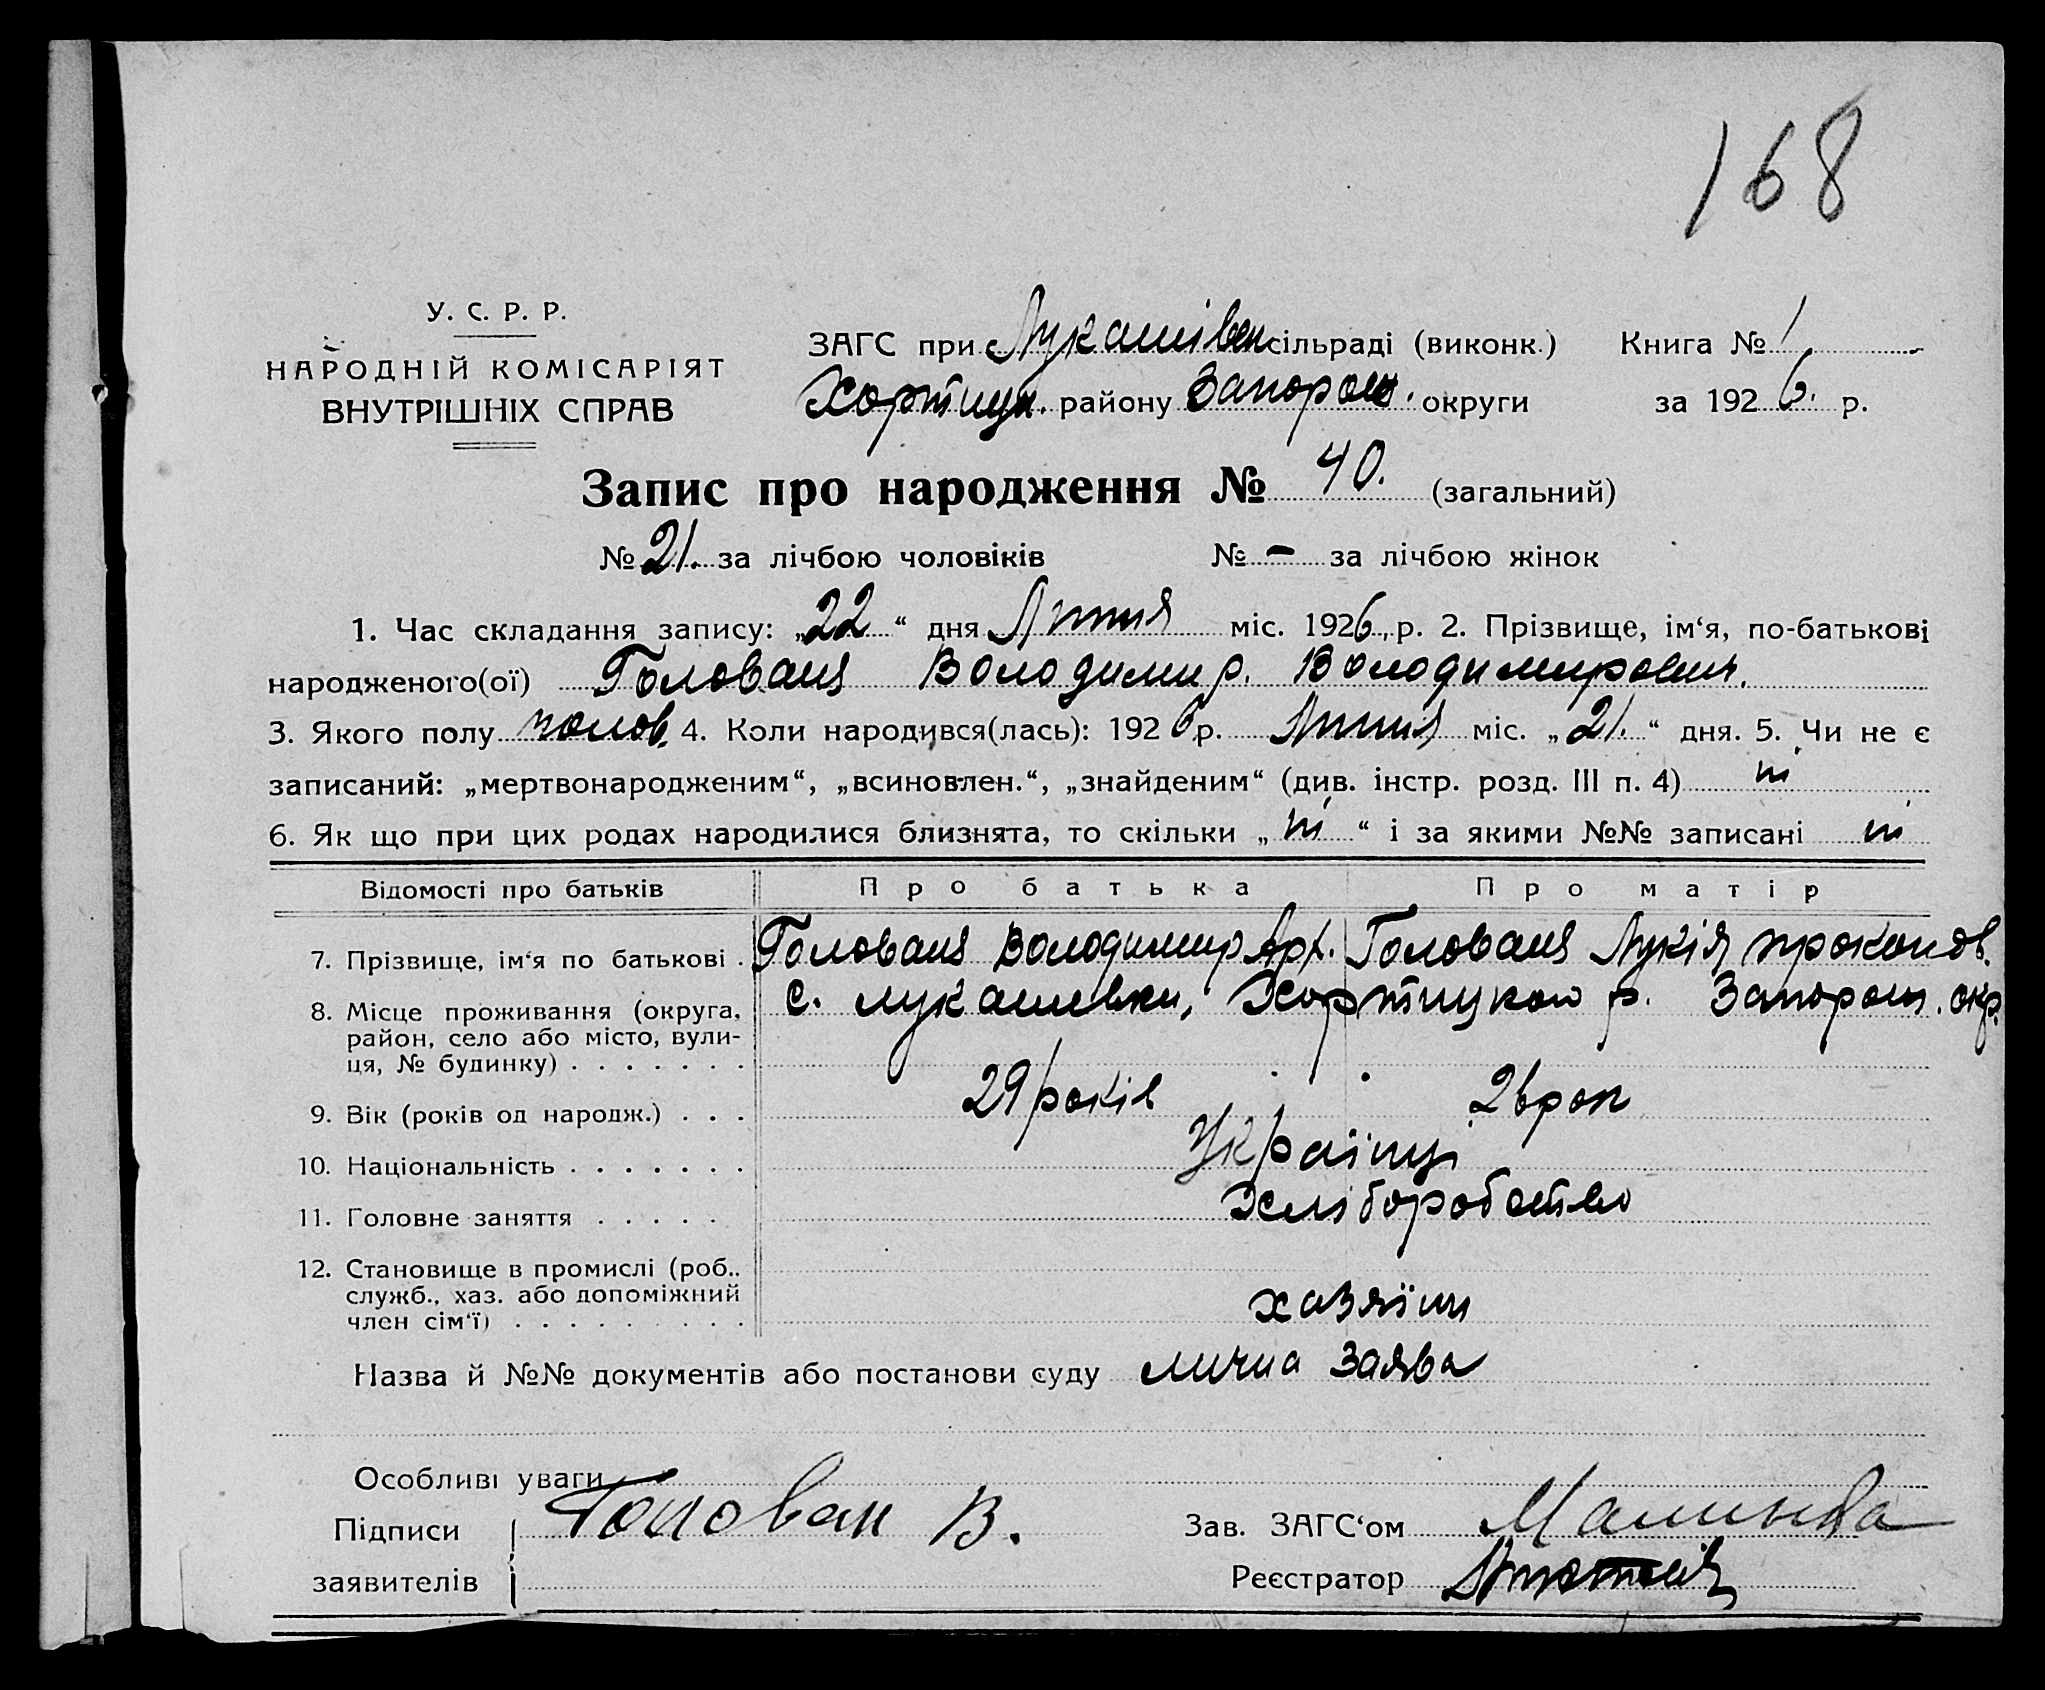 168
У. С. Р. Р.
НАРОДНІЙ КОМІСАРІЯТ
ВНУТРІШНІХ СПРАВ
ЗАГС при Лукашівен сільраді (виконк.) Книга № 1
Хортицьк. району Запорож. округи за 1926. р.
Запис про народження № 40. (загальний)
№ 21. за лічбою чоловіків № – за лічбою жінок
1. Час складання запису: „22“ дня Липня міс. 1926, р. 2. Прізвище, ім‘я, по-батькові
народженого(ої) Головань Володимир. Володимирович.
3. Якого полу чолов. 4. Коли народився(лась): 1926 р. Липня міс. „21.“ дня. 5. Чи не є
записаний: „мертвонародженим“, „всиновлен.“, „знайденим“ (див. інстр. розд. III п. 4) ні
6. Як що при цих родах народилися близнята, то скільки „ні“ і за якими №№ записані ні
Відомості про батьків Про батька Про матір
7. Прізвище, ім‘я по батькові . Головань Володимир Арх. Головань Лукія Прокопов.
8. Місце проживання (округа, с. Лукашевки, Хортицького р. Запорош. окр.
район, село або місто, вули-
ця, № будинку) . . . . . . .
9. Вік (років од народж.) . . . 29 років 26 рок
10. Національність . . . . . . . Українці
11. Головне заняття . . . . . Хліборобство
12. Становище в промислі (роб..
служб., хаз. або допоміжний
член сім‘ї) . . . . . . . . . хазяїни
Назва й №№ документів або постанови суду лична заява
Особливі уваги
Підписи Голован В. Зав. ЗАГС‘ом
заявителів Реєстратор